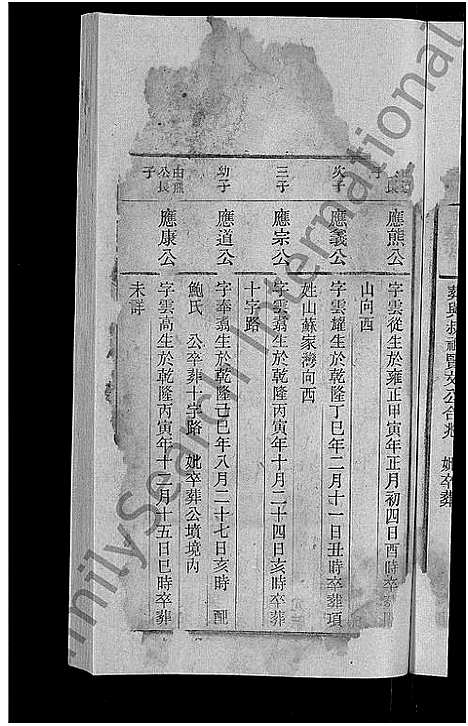 葬與叔祖賢交公合兆　妣卒葬
公長子
應熊公
字雲從生於雍正甲寅年正月初四日酉時卒葬
山向西
次子
應義公
字雲耀生於乾隆丁巳年二月十一日丑時卒葬項
姓山蘇家灣向西
三子
應宗公
字雲翥生於乾隆丙寅年十月二十四日亥時卒葬
十字路
幼子
應道公
字奉翥生於乾隆己巳年八月二十七日亥時　配
鮑氏　公卒葬十字路　妣卒葬公墳境內
由熊公長子
應康公
字雲高生於乾隆丙寅年十二月十五日巳時卒葬
未詳
FamilySearch International